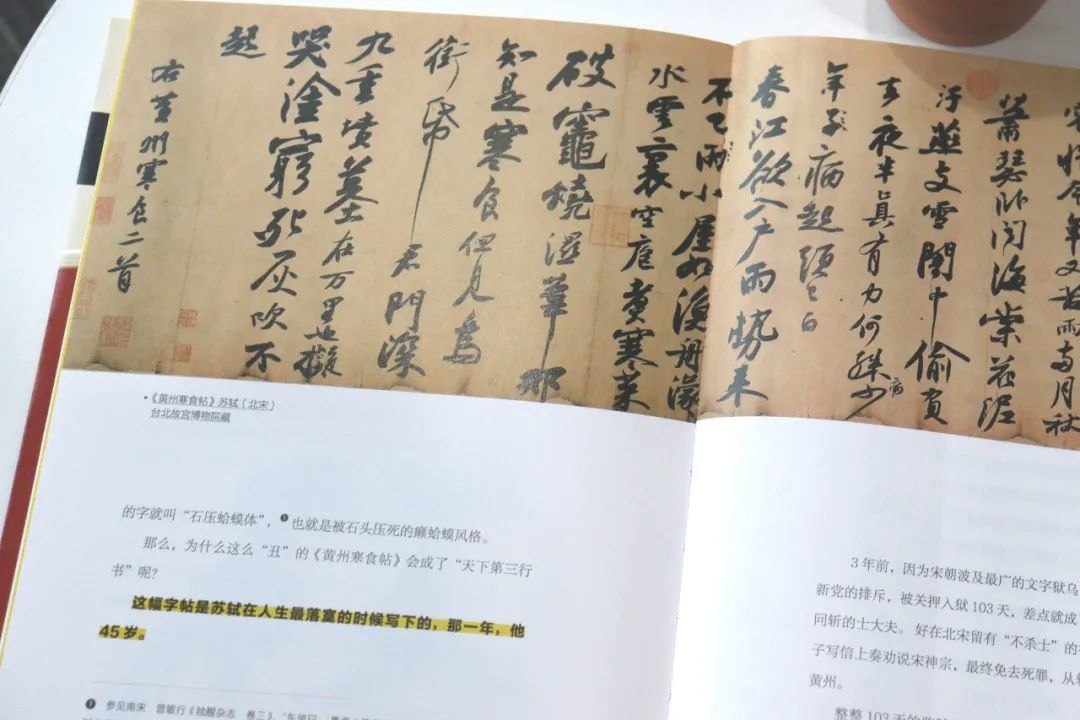 容惜今年又苦雨兩月秋
蕭瑟臥聞海棠花泥
汙燕支雪闇中偷負
去夜半真有力何殊病少
年子病起頭已白
春江欲入戶雨勢来
不已雨小屋如漁舟濛
水雲裏空庖煮寒菜
破竈燒濕葦那
知是寒食但見烏
銜帋君門深
九重墳墓在万里也擬
哭塗窮死灰吹不
起
右黃州寒食二首
•《黄州寒食帖》苏轼（北宋）
台北故宫博物院藏
的字就叫“石压蛤蟆体”，❶也就是被石头压死的癞蛤蟆风格。
那么，为什么这么“丑”的《黄州寒食帖》会成了“天下第三行
书”呢？
这幅字帖是苏轼在人生最落寞的时候写下的，那一年，他
45 岁。
❶ 参见南宋 曾敏行《独醒杂志 卷三》，
3 年前，因为宋朝波及最广的文字狱乌
新党的排斥，被关押入狱 103 天，差点就成
问斩的士大夫。好在北宋留有“不杀士”的
子写信上奏劝说宋神宗，最终免去死罪，从轻
黄州。
整整 103 天的